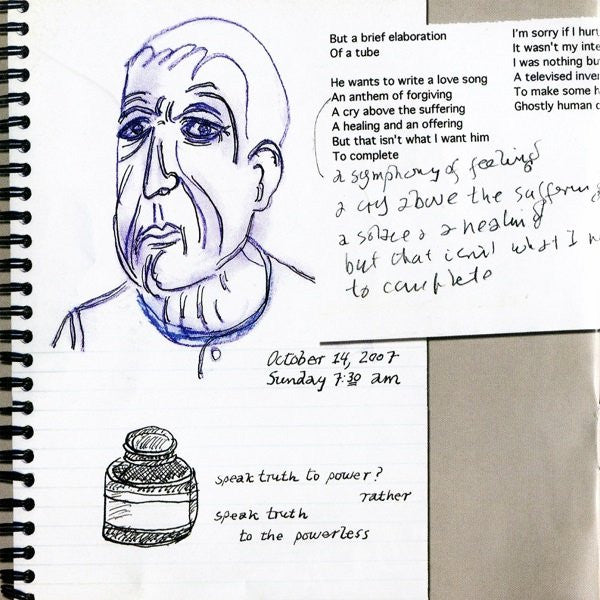 But a brief elaboration
Of a tube
He wants to write a love song
An anthem of forgiving
A cry above the suffering
A healing and an offering
But that isn't what I want him
To complete
I'm sorry if I hurt
It wasn't my inte
I was nothing bu
A televised inve
To make some h
Ghostly human
a symphony of feeling
a cry above the suffering
a solace a healing
but that isn't what I
to complete
October 14, 2007
Sunday 7:30 am
speak truth to power?
rather
speak truth
to the powerless